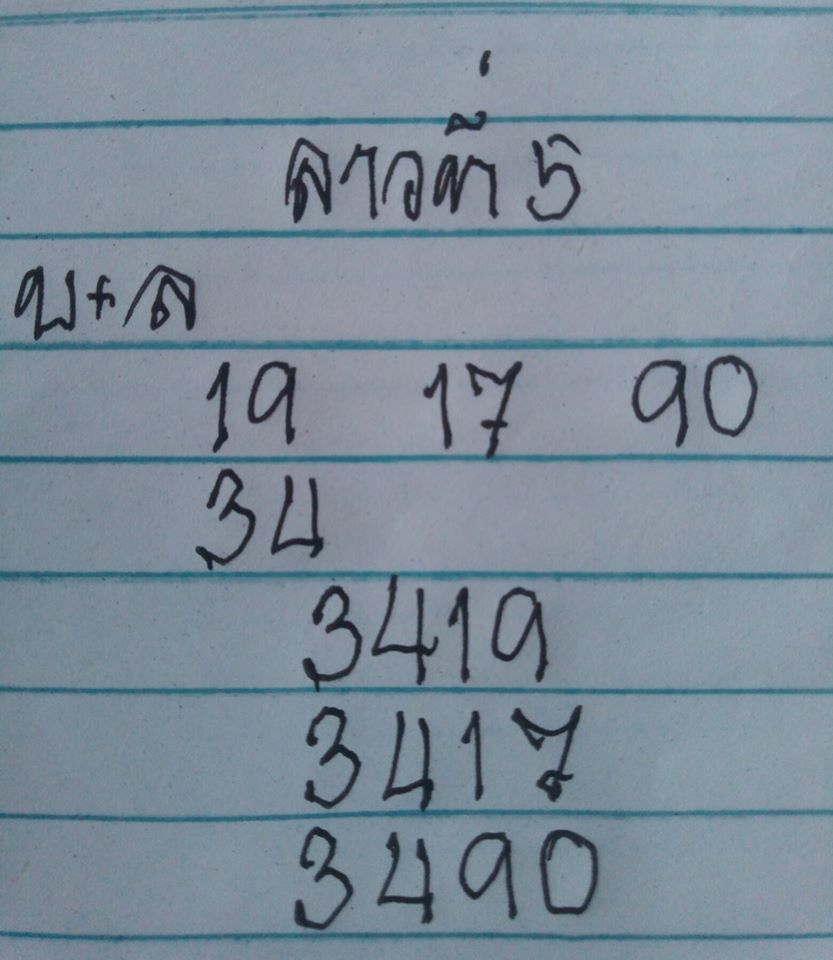 ลาวที่ 5
บ+ล
19 17 90
34
3419
3417
3490